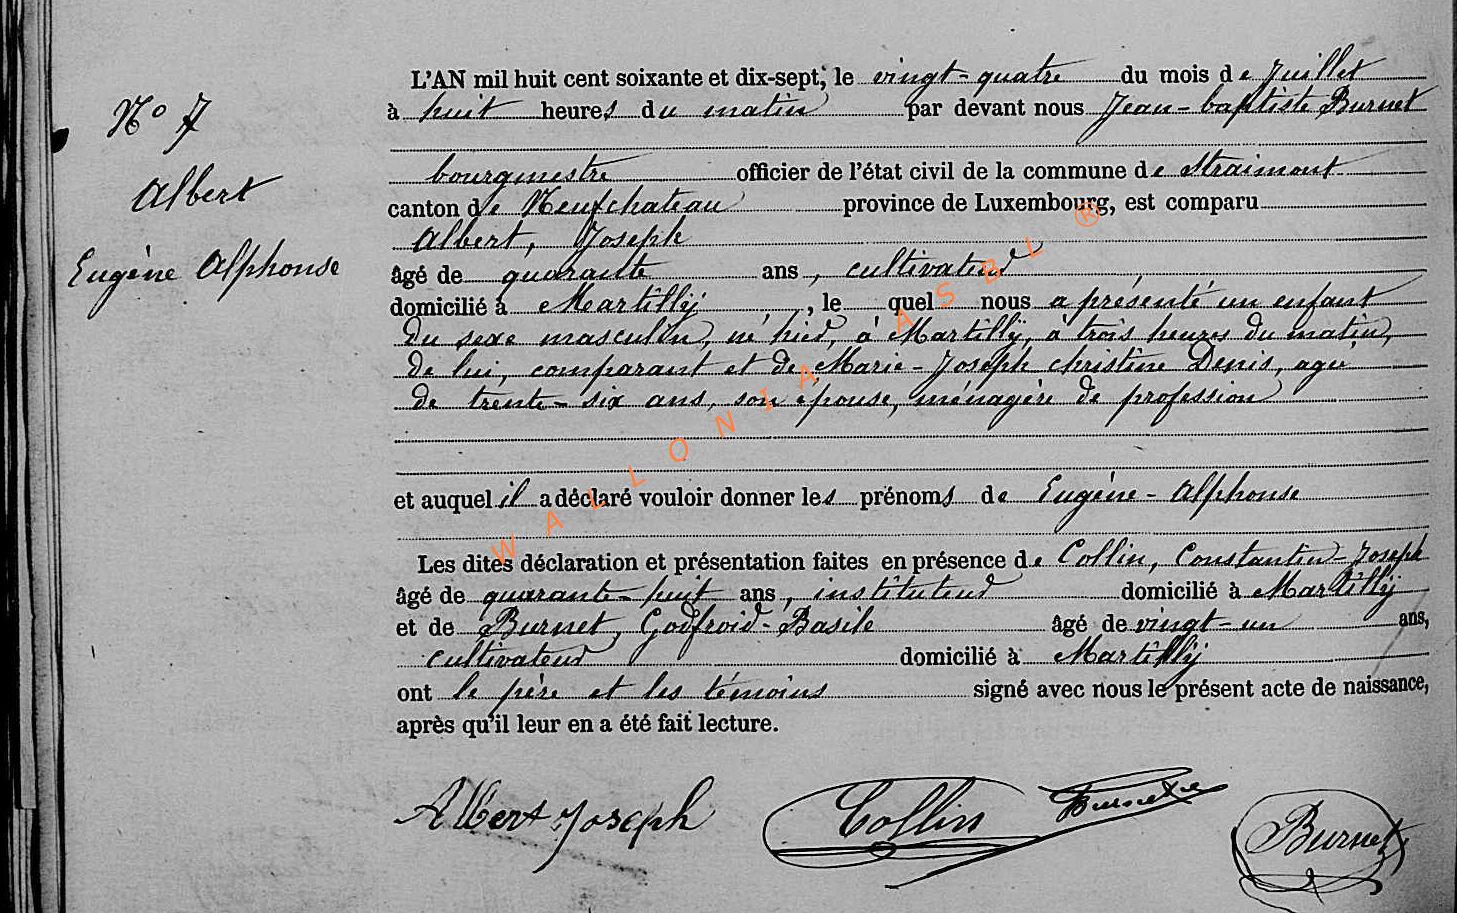 N° 7
Albert
Eugène Alphonse
L'AN mil huit cent soixante et dix-sept, le vingt-quatre du mois de Juillet
à huit heures du matin par devant nous Jean-baptiste Burnet
bourgmestre officier de l'état civil de la commune de Straimont
canton de Neufchateau province de Luxembourg, est comparu
Albert, Joseph
âgé de quarante ans, cultivateur
domicilié à Martilly, le quel nous a présenté un enfant
du sexe masculin, né hier, à Martilly, à trois heures du matin,
de lui, comparant et de Marie-Joseph christine Denis, agée
de trente-six ans, son épouse, ménagère de profession
et auquel il a déclaré vouloir donner les prénoms de Eugène-Alphonse
Les dites déclaration et présentation faites en présence de Collin, Constantin-Joseph
âgé de quarante-huit ans, instituteur domicilié à Martilly
et de Burnet, Godfroid-Basile âgé de vingt-un ans,
cultivateur domicilié à Martilly
ont le père et les témoins signé avec nous le présent acte de naissance,
après qu'il leur en a été fait lecture.
Albert Joseph Collin Burnet Burnet
WALLONIA ASBL ®